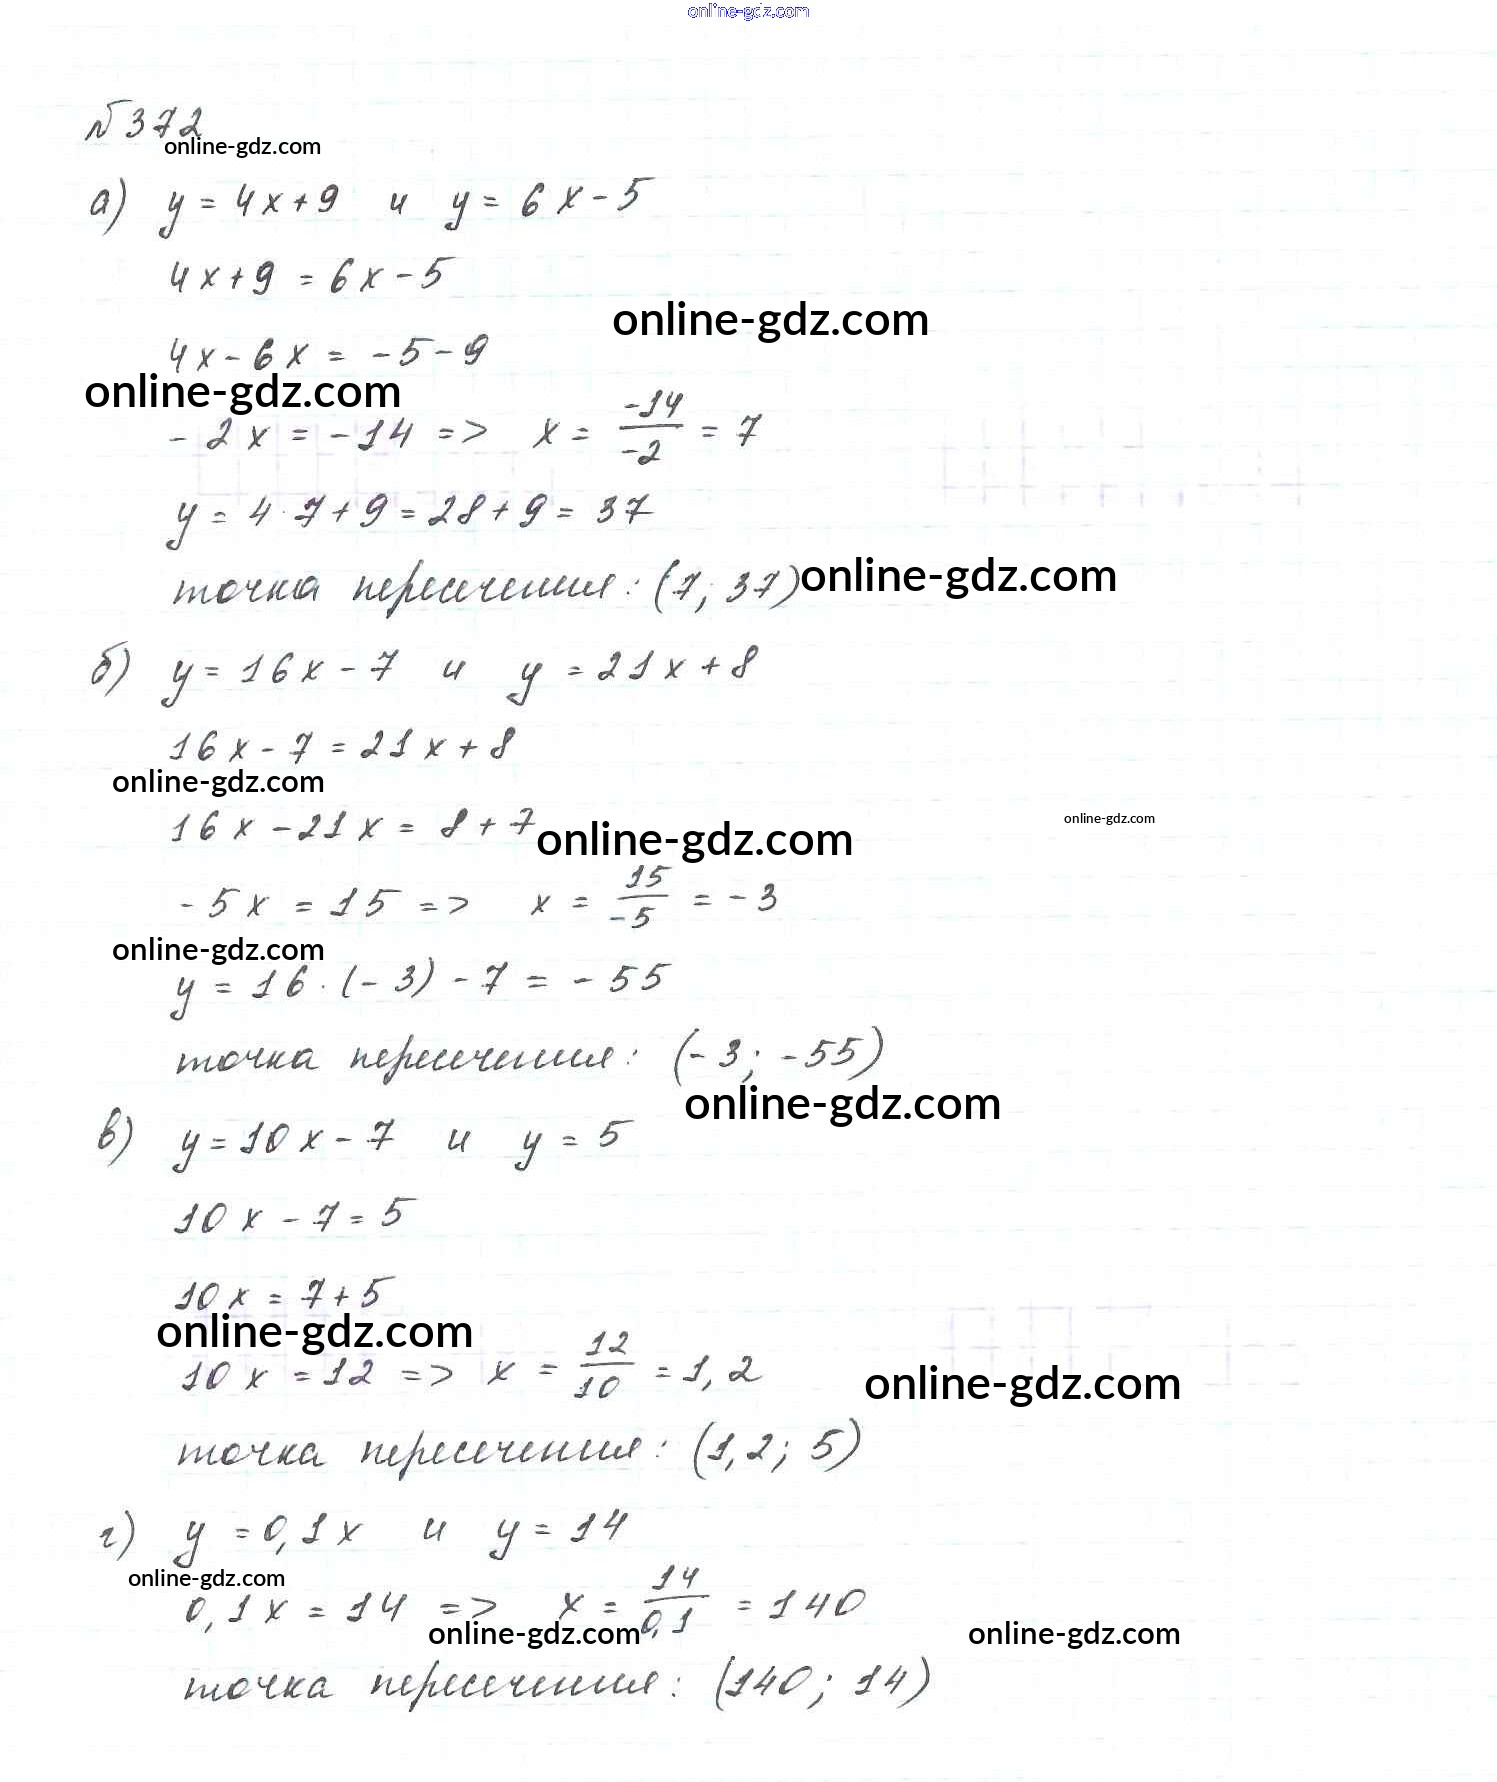 online-gdz.com
№372
online-gdz.com
а) y = 4x+9 и y = 6x-5
4x+9 = 6x-5
online-gdz.com
4x-6x = -5-9
online-gdz.com
-2x = -14 => x = -14/-2 = 7
y = 4·7+9=28+9= 37
точка пересечения: (7; 37)
online-gdz.com
б) y=16x-7 и y=21x+8
16x-7=21x+8
online-gdz.com
16x-21x= 8+7
online-gdz.com
online-gdz.com
-5x = 15 => x = 15/-5 = -3
online-gdz.com
y = 16·(-3)-7 = -55
точка пересечения: (-3; -55)
online-gdz.com
в) y=10x-7 и y=5
10x-7=5
10x = 7+5
online-gdz.com
10x = 12 => x = 12/10 = 1,2
online-gdz.com
точка пересечения: (1,2; 5)
г) y=0,1x и y=14
online-gdz.com
0,1x = 14 => x = 14/0,1 = 140
online-gdz.com
online-gdz.com
точка пересечения: (140; 14)